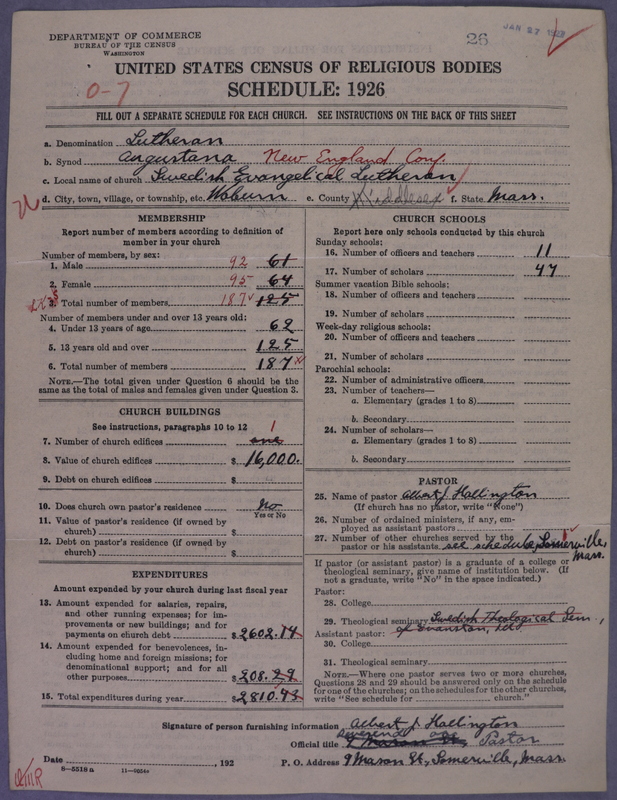 DEPARTMENT OF COMMERCE
BUREAU OF THE CENSUS
WASHINGTON
26
JAN 27
UNITED STATES CENSUS OF RELIGIOUS BODIES
SCHEDULE: 1926
0-7
FILL OUT A SEPARATE SCHEDULE FOR EACH CHURCH. SEE INSTRUCTIONS ON THE BACK OF THIS SHEET
a. Denomination Lutheran
b. Synod Augustana New England Conf.
c. Local name of church Swedish Evangelical Lutheran
d. City, town, village, or township, etc. Woburn e. County Middlesex f. State Mass.
MEMBERSHIP
Report number of members according to definition of member in your church
Number of members, by sex:
1. Male 92 61
2. Female 95 64
3. Total number of members 187 125
Number of members under and over 13 years old:
4. Under 13 years of age 62
5. 13 years old and over 125
6. Total number of members 187
NOTE.—The total given under Question 6 should be the
same as the total of males and females given under Question 3.
CHURCH BUILDINGS
See instructions, paragraphs 10 to 12
7. Number of church edifices one 1
8. Value of church edifices $ 16,000.
9. Debt on church edifices $
10. Does church own pastor's residence No
Yes or No
11. Value of pastor's residence (if owned by
church) $
12. Debt on pastor's residence (if owned by
church) $
EXPENDITURES
Amount expended by your church during last fiscal year
13. Amount expended for salaries, repairs,
and other running expenses; for im-
provements or new buildings; and for
payments on church debt $ 2602.14
14. Amount expended for benevolences, in-
cluding home and foreign missions; for
denominational support; and for all
other purposes $ 208.29
15. Total expenditures during year $ 2810.43
CHURCH SCHOOLS
Report here only schools conducted by this church
Sunday schools:
16. Number of officers and teachers 11
17. Number of scholars 47
Summer vacation Bible schools:
18. Number of officers and teachers
19. Number of scholars
Week-day religious schools:
20. Number of officers and teachers
21. Number of scholars
Parochial schools:
22. Number of administrative officers
23. Number of teachers—
a. Elementary (grades 1 to 8)
b. Secondary
24. Number of scholars—
a. Elementary (grades 1 to 8)
b. Secondary
PASTOR
25. Name of pastor Albert J. Hallington
(If church has no pastor, write "None")
26. Number of ordained ministers, if any, em-
ployed as assistant pastors
27. Number of other churches served by the
pastor or his assistants see schedule, Somerville,
Mass.
If pastor (or assistant pastor) is a graduate of a college or
theological seminary, give name of institution below. (If
not a graduate, write "No" in the space indicated.)
Pastor:
28. College
29. Theological seminary Swedish Theological Sem.,
Assistant pastor: of Evanston, Ill.
30. College
31. Theological seminary
NOTE.—Where one pastor serves two or more churches,
Questions 28 and 29 should be answered only on the schedule
for one of the churches; on the schedules for the other churches,
write "See schedule for church."
Signature of person furnishing information Albert J. Hallington
Official title Reverend 9 Mason Pastor
Date , 192 P. O. Address 9 Mason St., Somerville, Mass.
8—5518a 11—9054